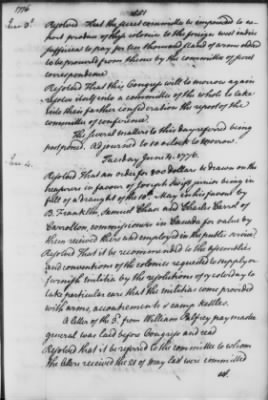 1776
June 3d.
Resolved That the secret committee be impowered to ex
port produce of these colonies to the foreign west indies
sufficient to pay for ten thousand stand of arms ordered
to be procured from thence by the committee of secret
correspondence
Resolved That this Congress will to morrow again
resolve itself into a committee of the whole to take
into their farther consideration the report of the
committee of conference.
The several matters to this day referred being
postpond. Adjourned to 10 oClock to Morrow.
June 4.
Tuesday June 4. 1776.
Resolved That an order for 400 dollars be drawn on the
treasurers in favour of Joseph Bass junior being in
full of a draught of the 10th. May in his favour by
B. Franklin, Samuel Chase and Charles Carrol of
Carrolton, commissioners in Canada for value by
them received there and employed in the public service.
Resolved That it be recommended to the assemblies
and conventions of the colonies requested to supply or
furnish militia by the resolutions of yesterday to
take particular care that the militia come provided
with arms, acoutrements & camp kettles.
A letter of the 3d. from William Palfrey pay master
general was laid before Congress and read
Resolved that it be referred to the committee to whom
the letters received the 21 of may last were committed